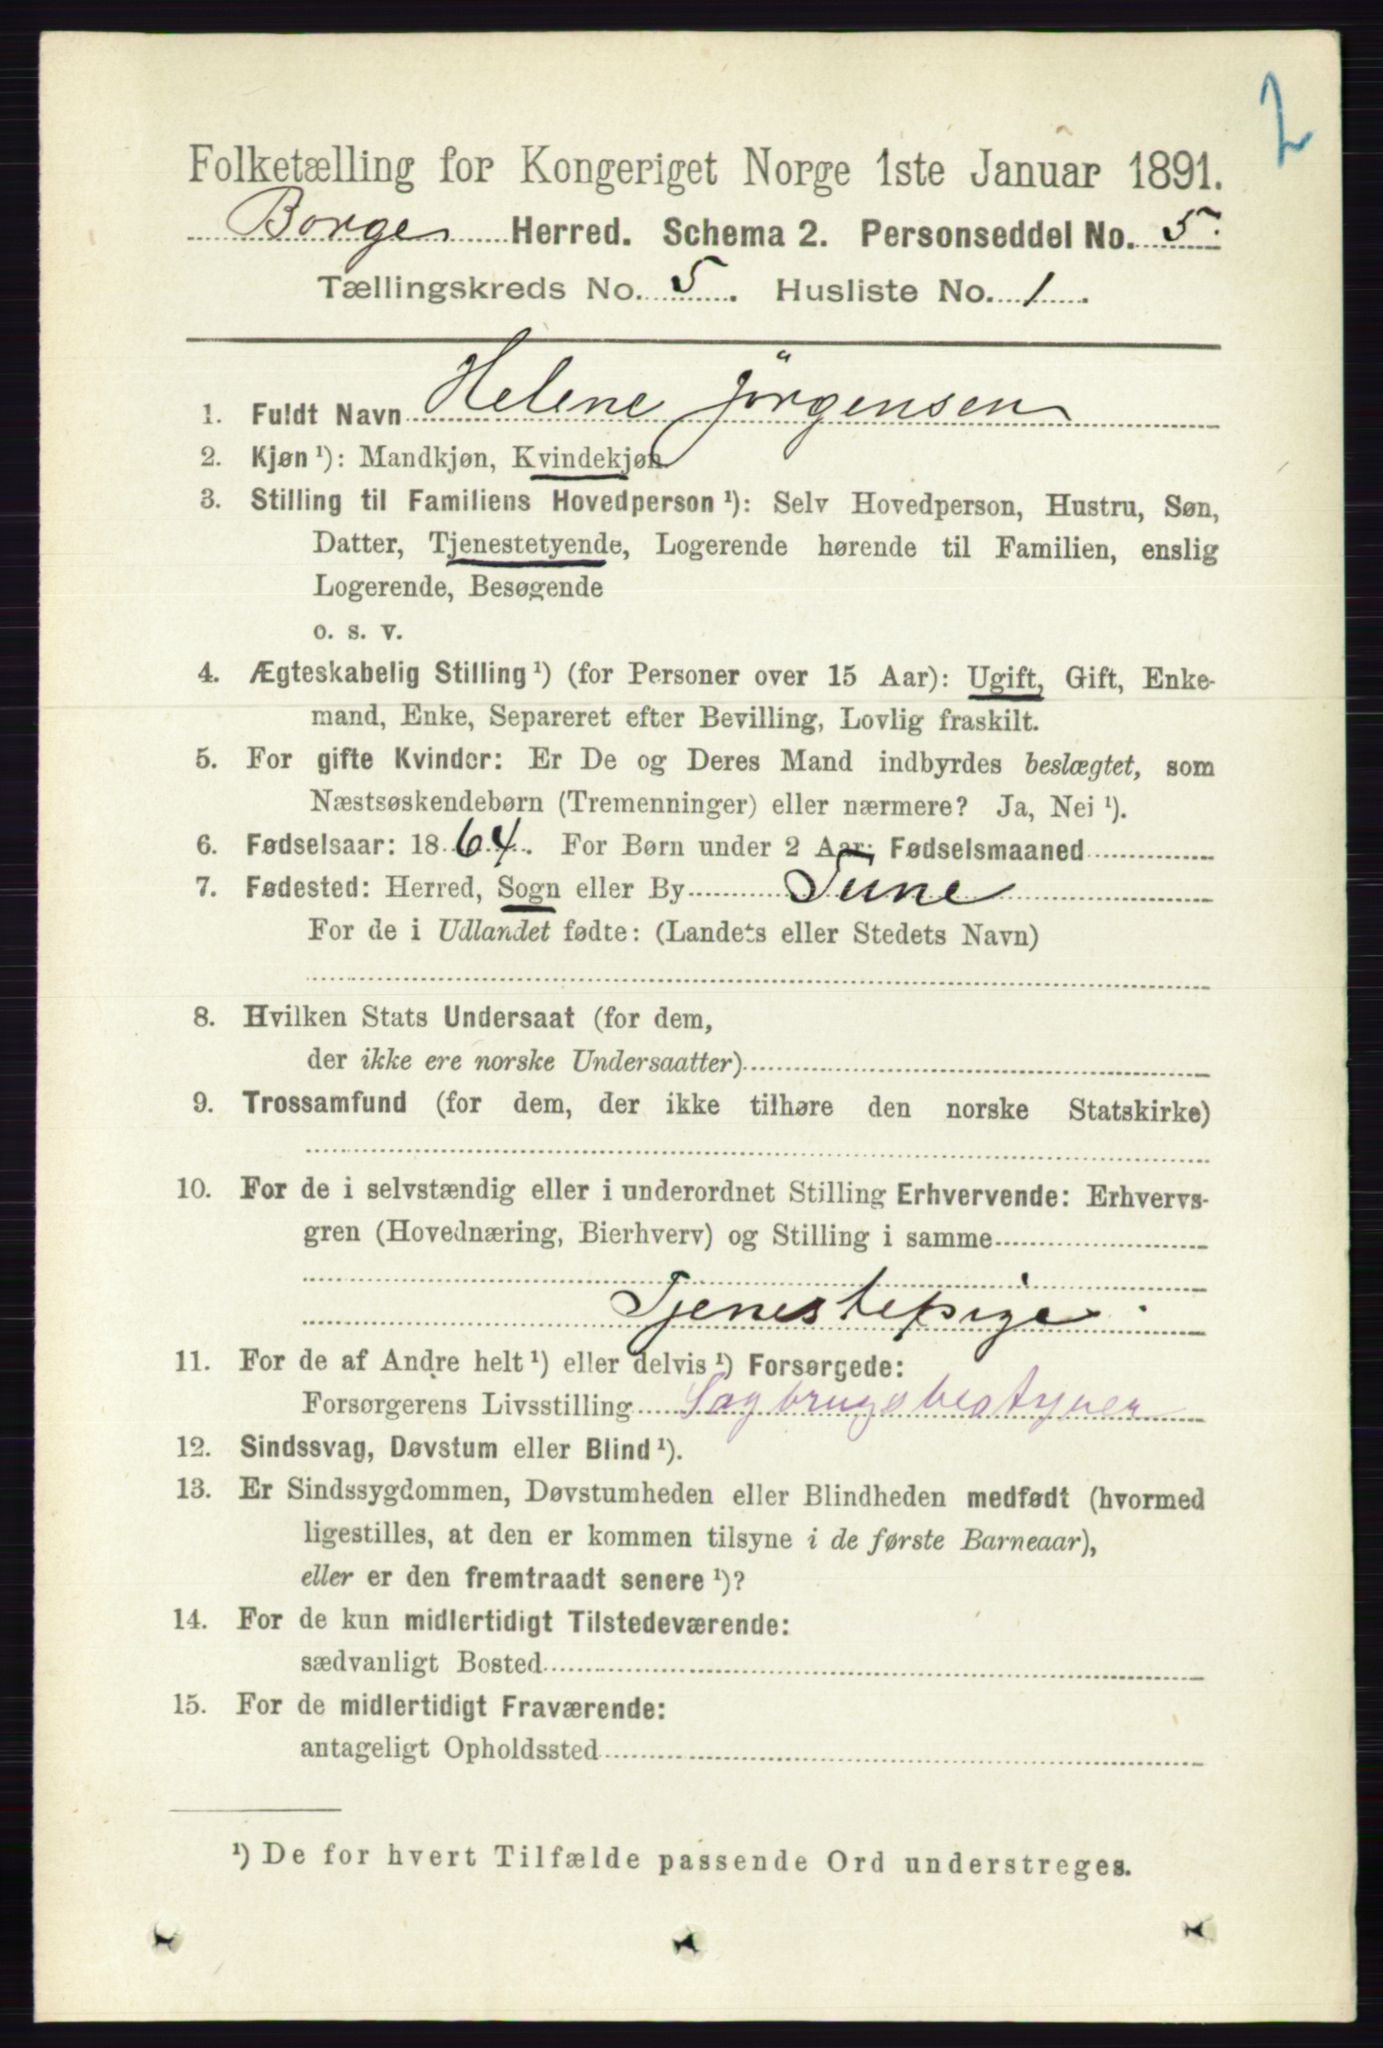 2
Folketælling for Kongeriget Norge 1ste Januar 1891.
Borge Herred. Schema 2. Personseddel No. 5.
Tællingskreds No. 5. Husliste No. 1.
1. Fuldt Navn Helene Jörgensen
2. Kjøn ¹): Mandkjøn, Kvindekjøn
3. Stilling til Familiens Hovedperson ¹): Selv Hovedperson, Hustru, Søn,
Datter, Tjenestetyende, Logerende hørende til Familien, enslig
Logerende, Besøgende
o. s. v.
4. Ægteskabelig Stilling ¹) (for Personer over 15 Aar): Ugift, Gift, Enke-
mand, Enke, Separeret efter Bevilling, Lovlig fraskilt.
5. For gifte Kvinder: Er De og Deres Mand indbyrdes beslægtet, som
Næstsøskendebørn (Tremenninger) eller nærmere? Ja, Nei ¹).
6. Fødselsaar: 1864. For Børn under 2 Aar: Fødselsmaaned
7. Fødested: Herred, Sogn eller By Tune
For de i Udlandet fødte: (Landets eller Stedets Navn)
8. Hvilken Stats Undersaat (for dem,
der ikke ere norske Undersaatter)
9. Trossamfund (for dem, der ikke tilhøre den norske Statskirke)
10. For de i selvstændig eller i underordnet Stilling Erhvervende: Erhvervs-
gren (Hovednæring, Bierhverv) og Stilling i samme
Tjenestepige.
11. For de af Andre helt ¹) eller delvis ¹) Forsørgede:
Forsørgerens Livsstilling Sagbrugsbestyrer
12. Sindssvag, Døvstum eller Blind ¹).
13. Er Sindssygdommen, Døvstumheden eller Blindheden medfødt (hvormed
ligestilles, at den er kommen tilsyne i de første Barneaar),
eller er den fremtraadt senere ¹)?
14. For de kun midlertidigt Tilstedeværende:
sædvanligt Bosted
15. For de midlertidigt Fraværende:
antageligt Opholdssted
¹) De for hvert Tilfælde passende Ord understreges.